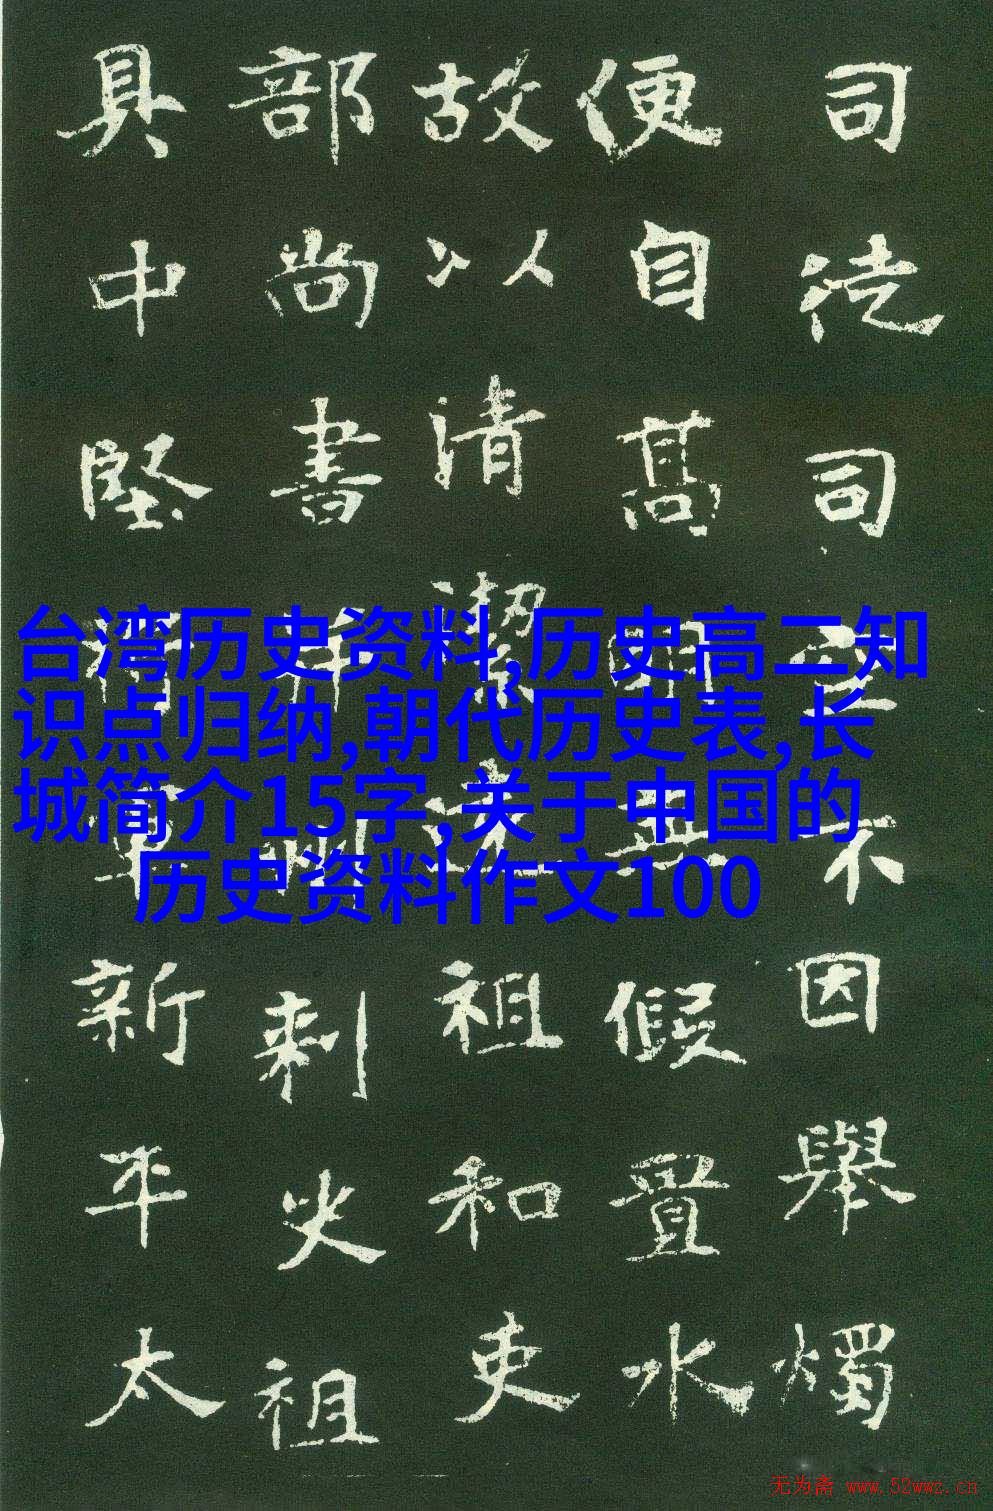 司徒司空不因舉燭
便自高明假置水
故以清潔祖和吏
部尚書并州刺史祖
具中堅將軍新平太
台湾历史资料,历史高二知
识点归纳,朝代历史表,长
城简介15字,关于中国的
历史资料作文100
无为斋 www.52wwz.cn